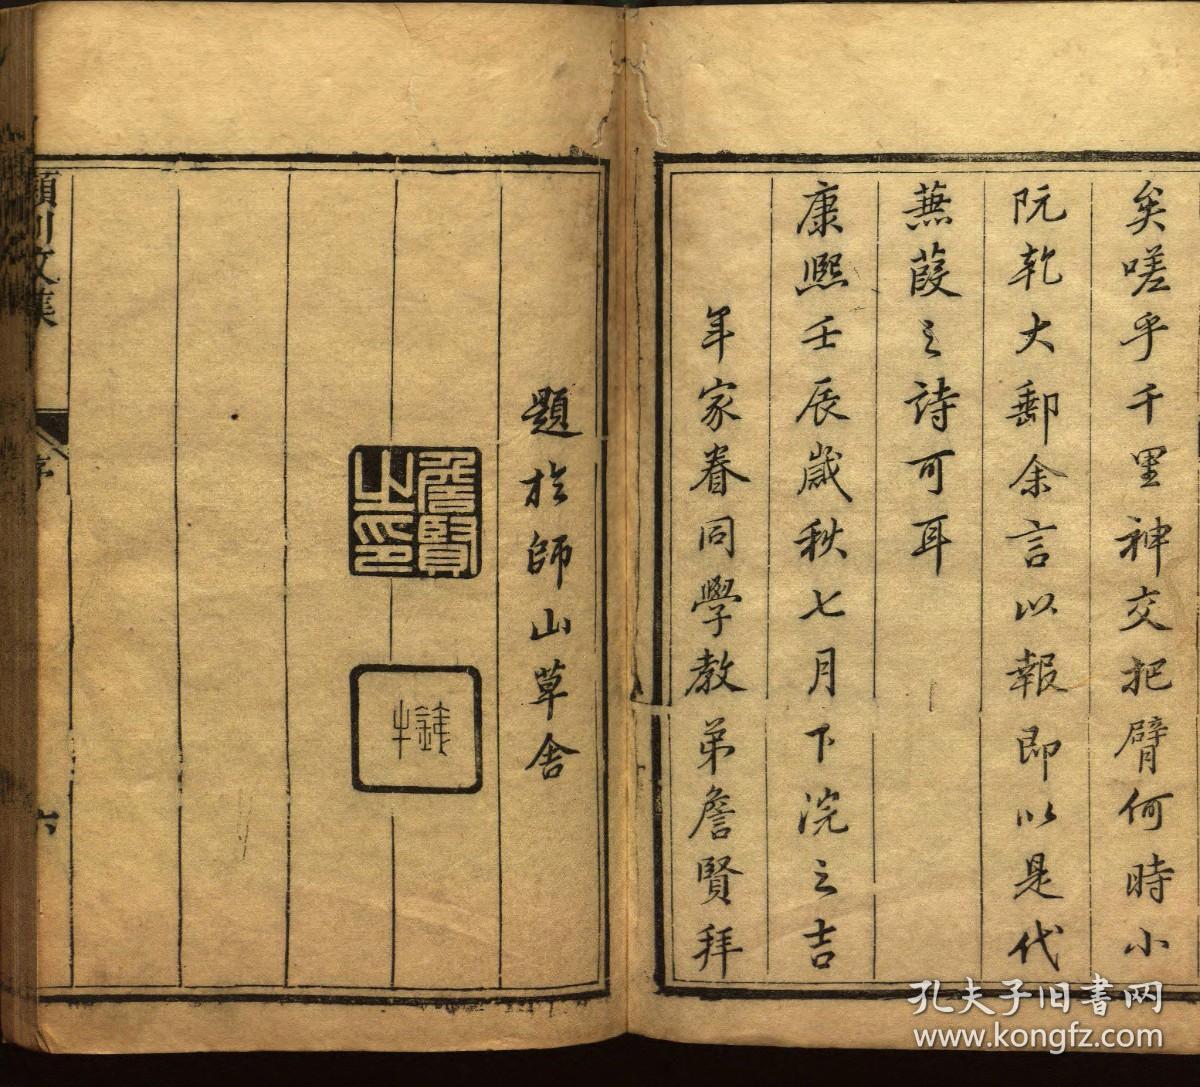 矣嗟乎千里神交把臂何時小
阮乾大郵余言以報即以是代
蒹葭之詩可耳
康熙壬辰歲秋七月下浣之吉
年家眷同學教弟詹賢拜
題於師山草舍
詹賢之印
鐵牛
川文集
序
六
孔夫子旧书网
www.kongfz.com